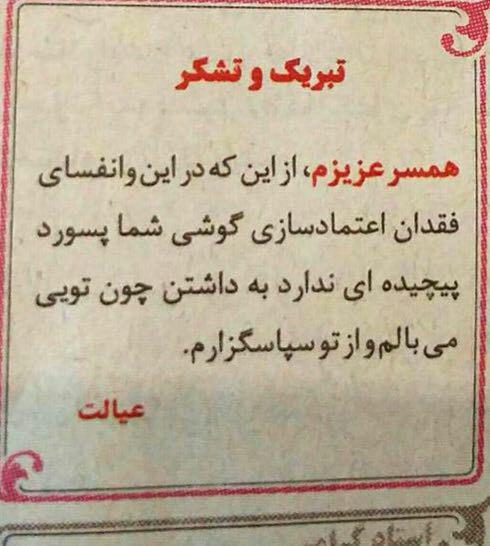 تبریک و تشکر
همسر عزیزم، از این که در این وانفسای
فقدان اعتمادسازی گوشی شما پسورد
پیچیده ای ندارد به داشتن چون تویی
می بالم و از تو سپاسگزارم.
عیالت